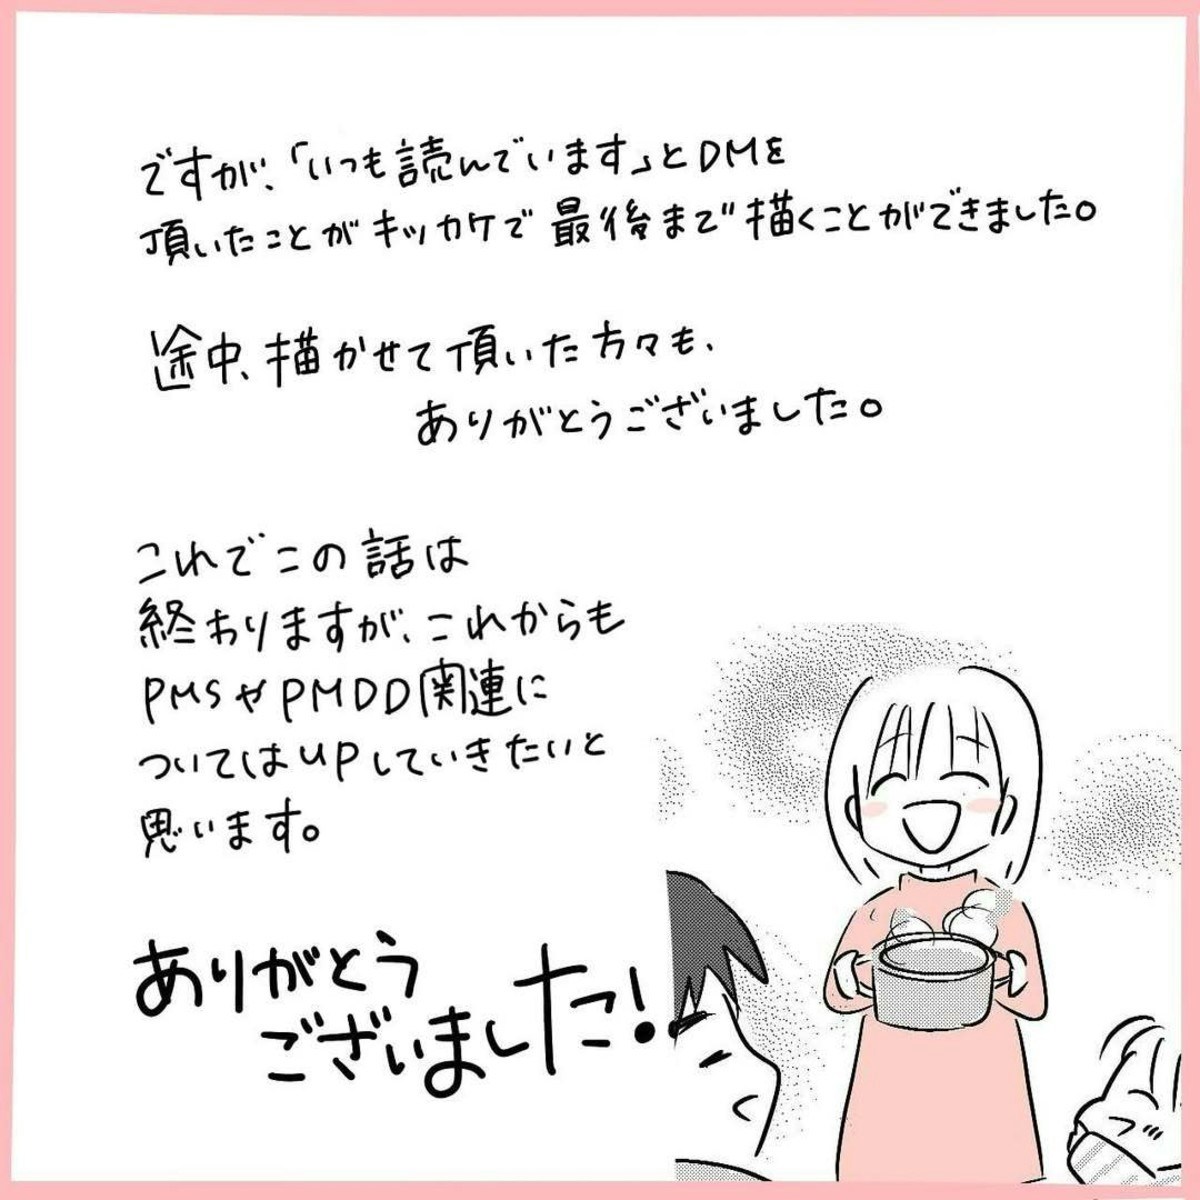 ですが、「いつも読んでいます」とDMを
頂いたことがキッカケで最後まで描くことができました。
途中、描かせて頂いた方々も、
ありがとうございました。
これでこの話は
終わりますが、これからも
PMSやPMDD関連に
ついてはUPしていきたいと
思います。
ありがとう
ございました!